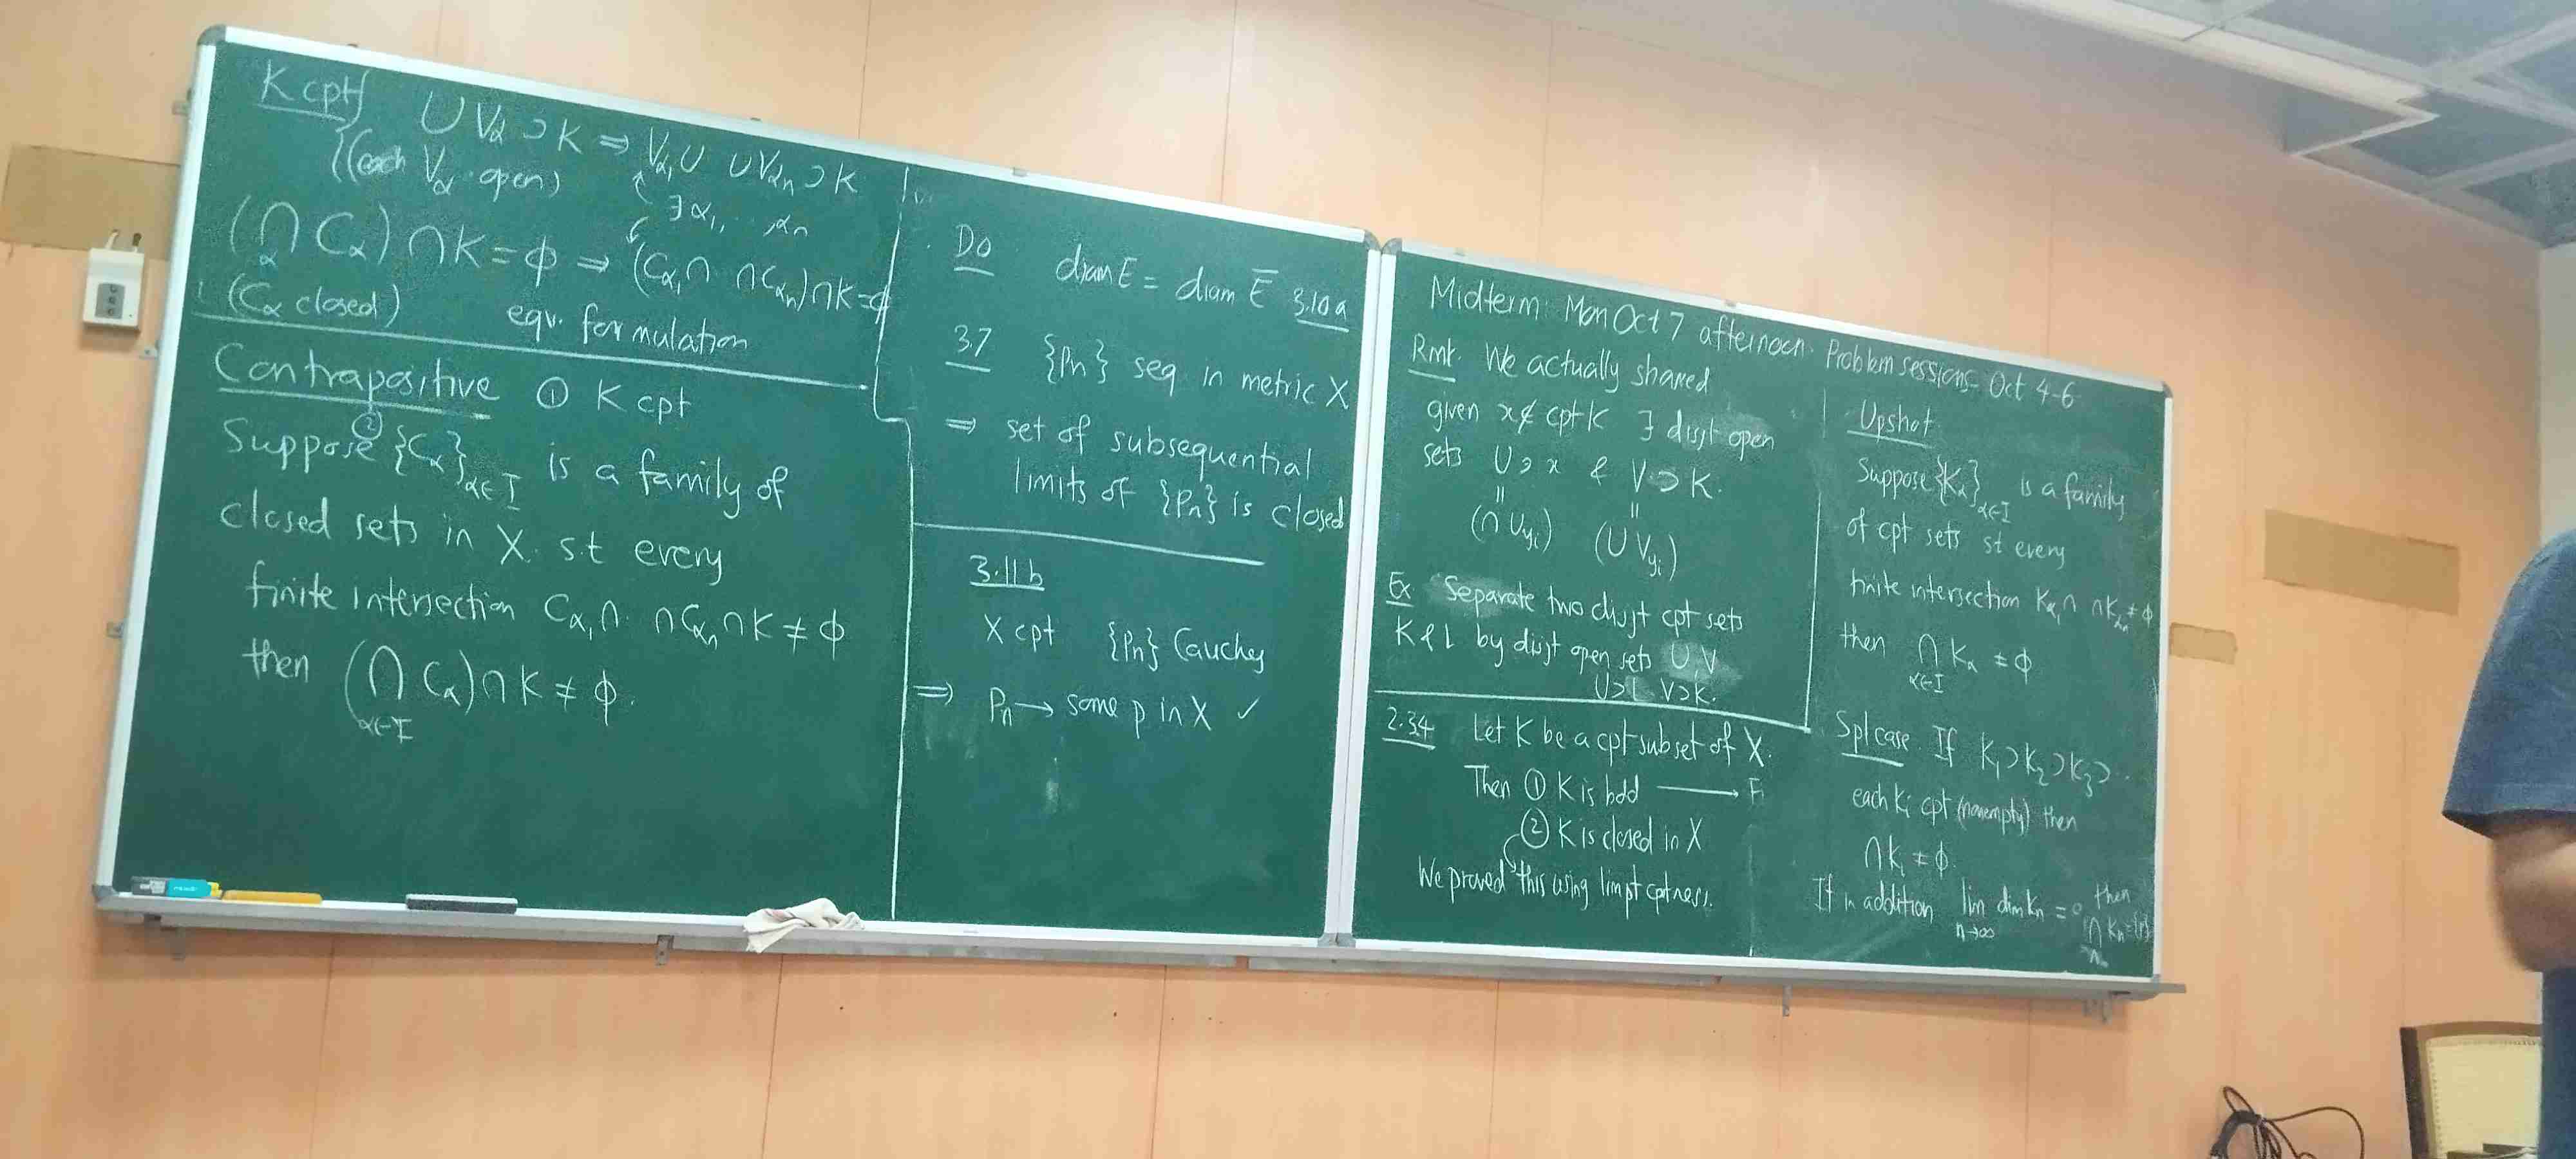 K cpt
∪ Vα ⊃ K ⇒ Vα₁ ∪ ∪ Vαn ⊃ K
(each Vα open)
∃ α₁, .. , αn
(∩ Cα) ∩ K = ϕ ⇒ (Cα₁ ∩ ∩ Cαn) ∩ K = ϕ
α
(Cα closed) eqv. formulation
Contrapositive ① K cpt
②
Suppose {Cα}α∈I is a family of
closed sets in X. s.t every
finite intersection Cα₁ ∩ . ∩ Cαn ∩ K ≠ ϕ
then (∩ Cα) ∩ K ≠ ϕ.
α∈I
Do diam E = diam E̅ 3.10 a
3.7 {pn} seq. in metric X
⇒ set of subsequential
limits of {pn} is closed
3.11 b
X cpt {pn} Cauchy
⇒ pn → some p in X ✓
Midterm: Mon Oct 7 afternoon. Problem sessions Oct 4-6
Rmk. We actually shared
given x∉ cpt K ∃ disjt open
sets U ∋ x & V ⊃ K.
|| ||
(∩ Uyi) (∪ Vyi)
Ex Separate two disjt cpt sets
K & L by disjt open sets U V
U ⊃ L V ⊃ K.
2.34 Let K be a cpt subset of X.
Then ① K is bdd ⟶
② K is closed in X
We proved this using lim pt cptness.
Upshot
Suppose {Kα}α∈I is a family
of cpt sets st every
finite intersection Kα₁ ∩ ∩ Kαn ≠ ϕ
then ∩ Kα ≠ ϕ
α∈I
Spl case. If K₁ ⊃ K₂ ⊃ K₃ ⊃ ..
each Ki cpt (nonempty) then
∩ Ki ≠ ϕ.
If in addition lim dim Kn = 0 then
n→∞
∩ Kn = {p}
n